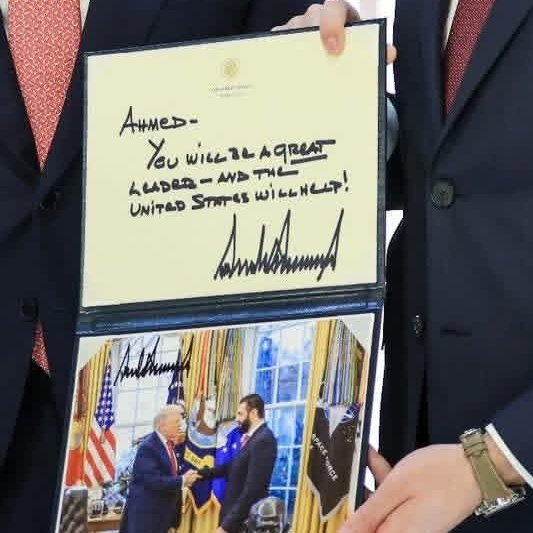 AHMED-
YOU WILL BE A GREAT
LEADER - AND THE
UNITED STATES WILL HELP!
SPACE FORCE